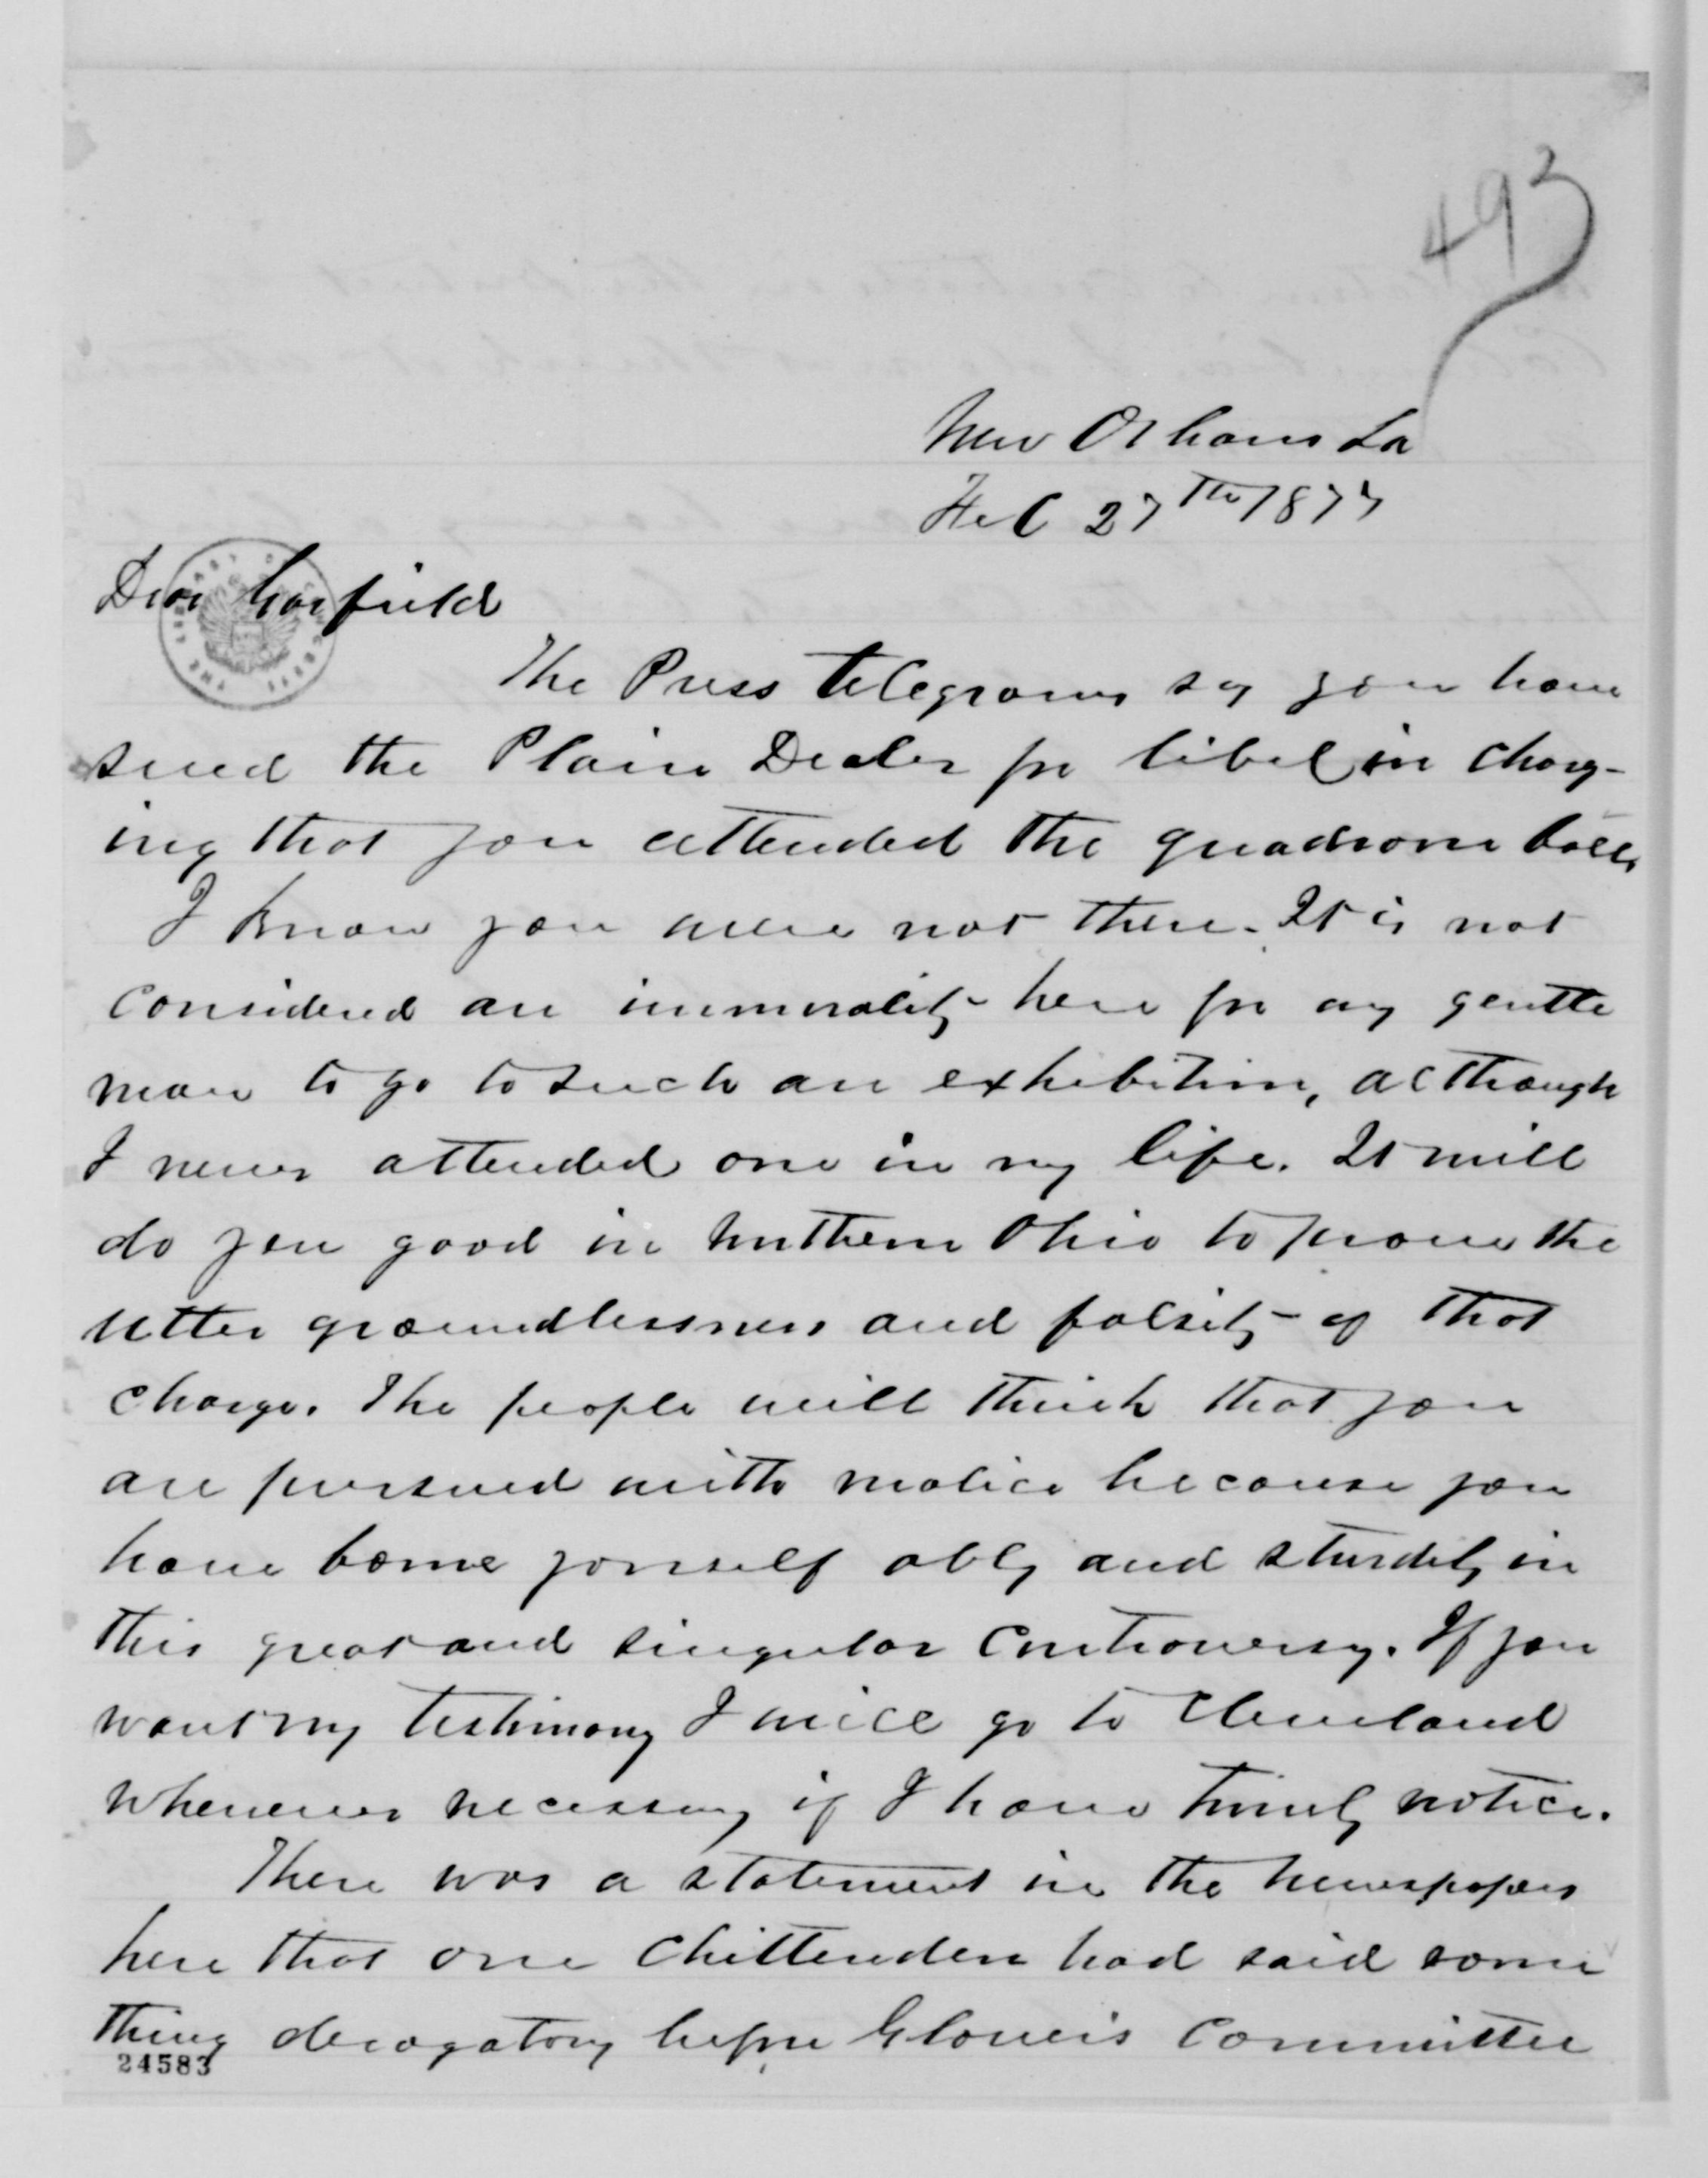 493
New Orleans La
Feb 27th 1877
Dear Garfield
The Press telegrams say you have
sued the Plain Dealer for libel in charg-
ing that you attended the quadroon ball,
I know you were not there. It is not
considered an immorality here for any gentle
man to go to such an exhibition, although
I never attended one in my life. It will
do you good in Northern Ohio to prove the
utter groundlessness and falsity of that
charge. The people will think that you
are pursued with malice because you
have borne yourself ably and sturdily in
this great and singular controversy. If you
want my testimony I will go to Cleveland
whenever necessary if I have timely notice.
There was a statement in the newspapers
here that one Chittenden had said some
thing derogatory before Glover's Committee
24583